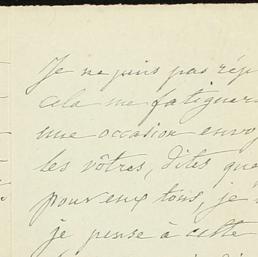 Je ne puis pas rép
cela me fatiguera
une occasion envo
les vôtres, dites que
pour eux tous, je
je pense à cette